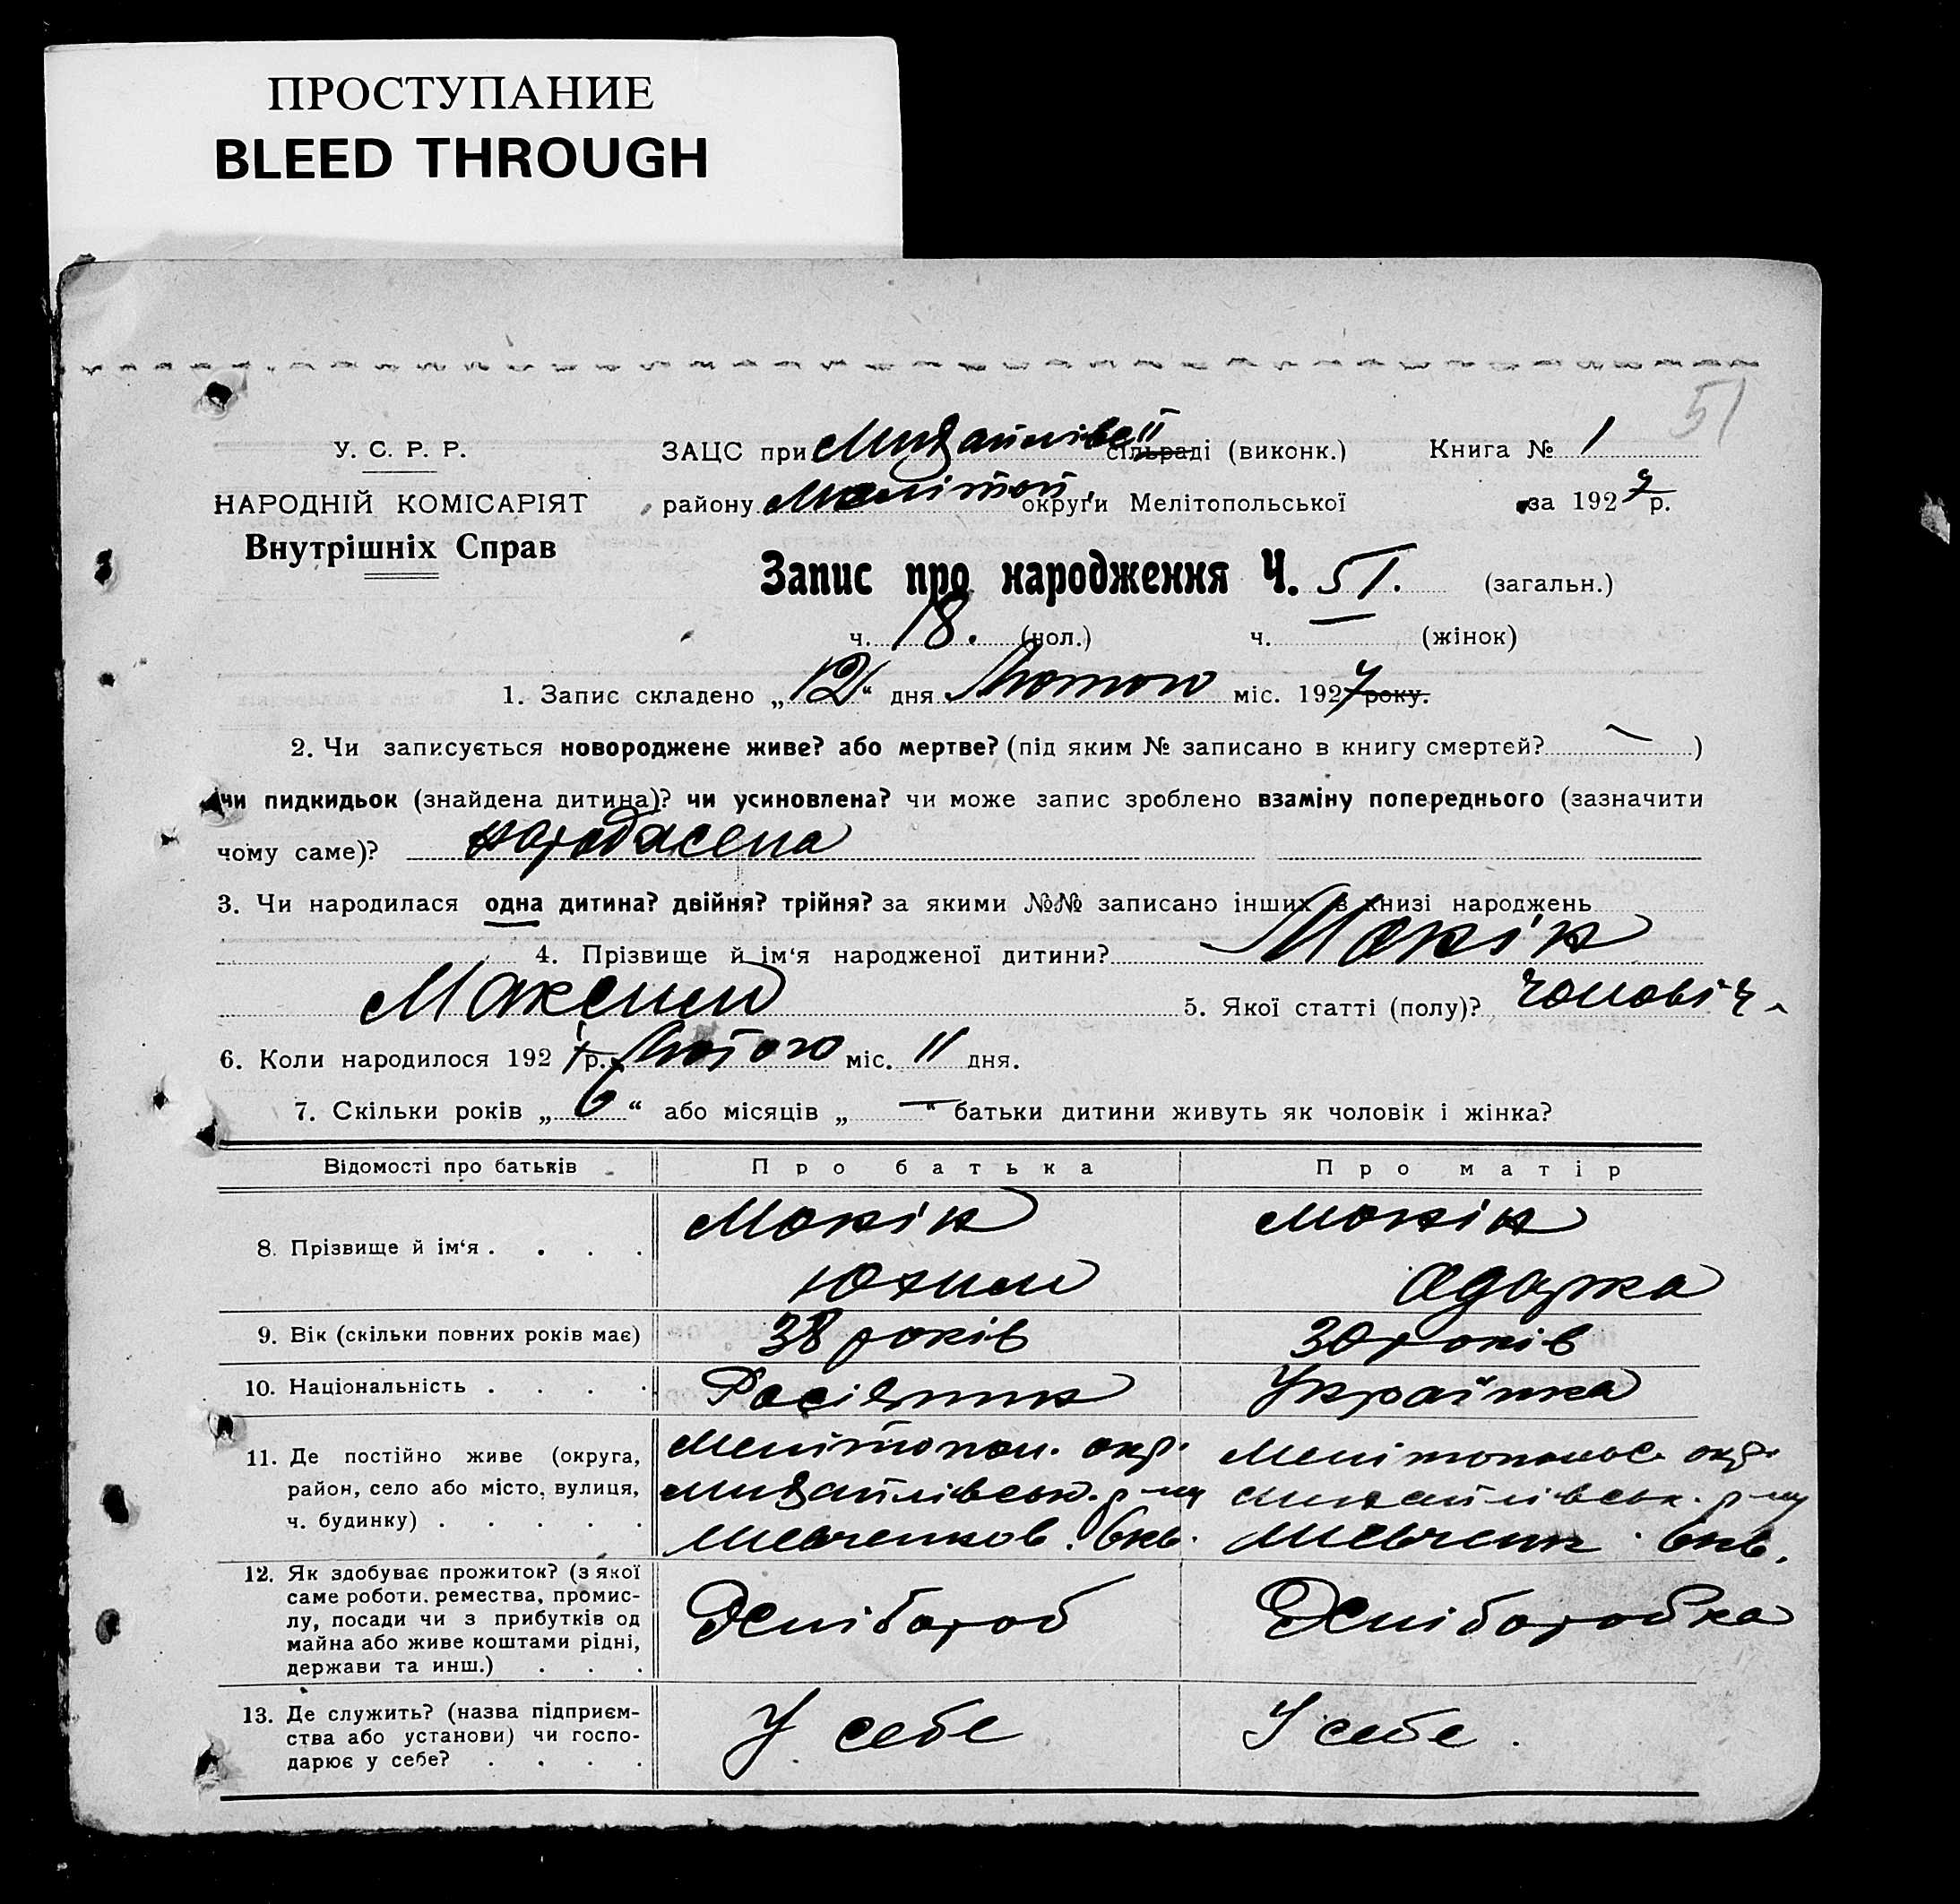 ПРОСТУПАНИЕ
BLEED THROUGH
51
У. С. Р. Р.
ЗАЦС при сільраді (виконк.) Книга № 1
НАРОДНІЙ КОМІСАРІЯТ
району Меліtoп. округи Мелітопольської за 1927 р.
Внутрішніх Справ
Запис про народження Ч. 51. (загальн.)
ч. 18. (чол.) ч. — (жінок)
1. Запис складено „12“ дня Лютого міс. 1927 року.
2. Чи записується новороджене живе? або мертве? (під яким № записано в книгу смертей? — )
чи пидкидьок (знайдена дитина)? чи усиновлена? чи може запис зроблено взаміну попереднього (зазначити
чому саме)? народжена
3. Чи народилася одна дитина? двійня? трійня? за якими №№ записано інших в книзі народжень
4. Прізвище й ім‘я народженої дитини? Мокік
Максим 5. Якої статті (полу)? чоловіч.
6. Коли народилося 1927 р. Лютого міс. 11 дня.
7. Скільки років „6“ або місяців „—“ батьки дитини живуть як чоловік і жінка?
Відомості про батьків Про батька Про матір
8. Прізвище й ім‘я . . . . Мокік Мокік
Юхим Одарка
9. Вік (скільки повних років має) 38 років 30 років
10. Національність . . . . Росіянин Українка
11. Де постійно живе (округа, Мелітопол. окр. Мелітопольс. окр.
район, село або місто, вулиця, Михайлівськ. р-ну Михайлівськ. р-ну
ч. будинку) . . . . . Шевченков. Шевченк.
12. Як здобуває прожиток? (з якої
саме роботи, ремества, промис-
лу, посади чи з прибутків од Хлібороб Хліборобка
майна або живе коштами рідні,
держави та инш.) . . .
13. Де служить? (назва підприєм-
ства або установи) чи госпо- У себе У себе.
дарює у себе? . . . .